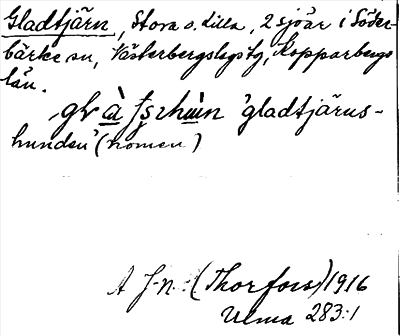 Gladtjärn, Stora o. Lilla, 2 sjöar i Söder-
bärke sn, Västerbergslags tg, Kopparbergs
län.
'gladtjärns-
hunden' (nomen)
A J-n: (Thorfors) 1916
Ulma 283:1